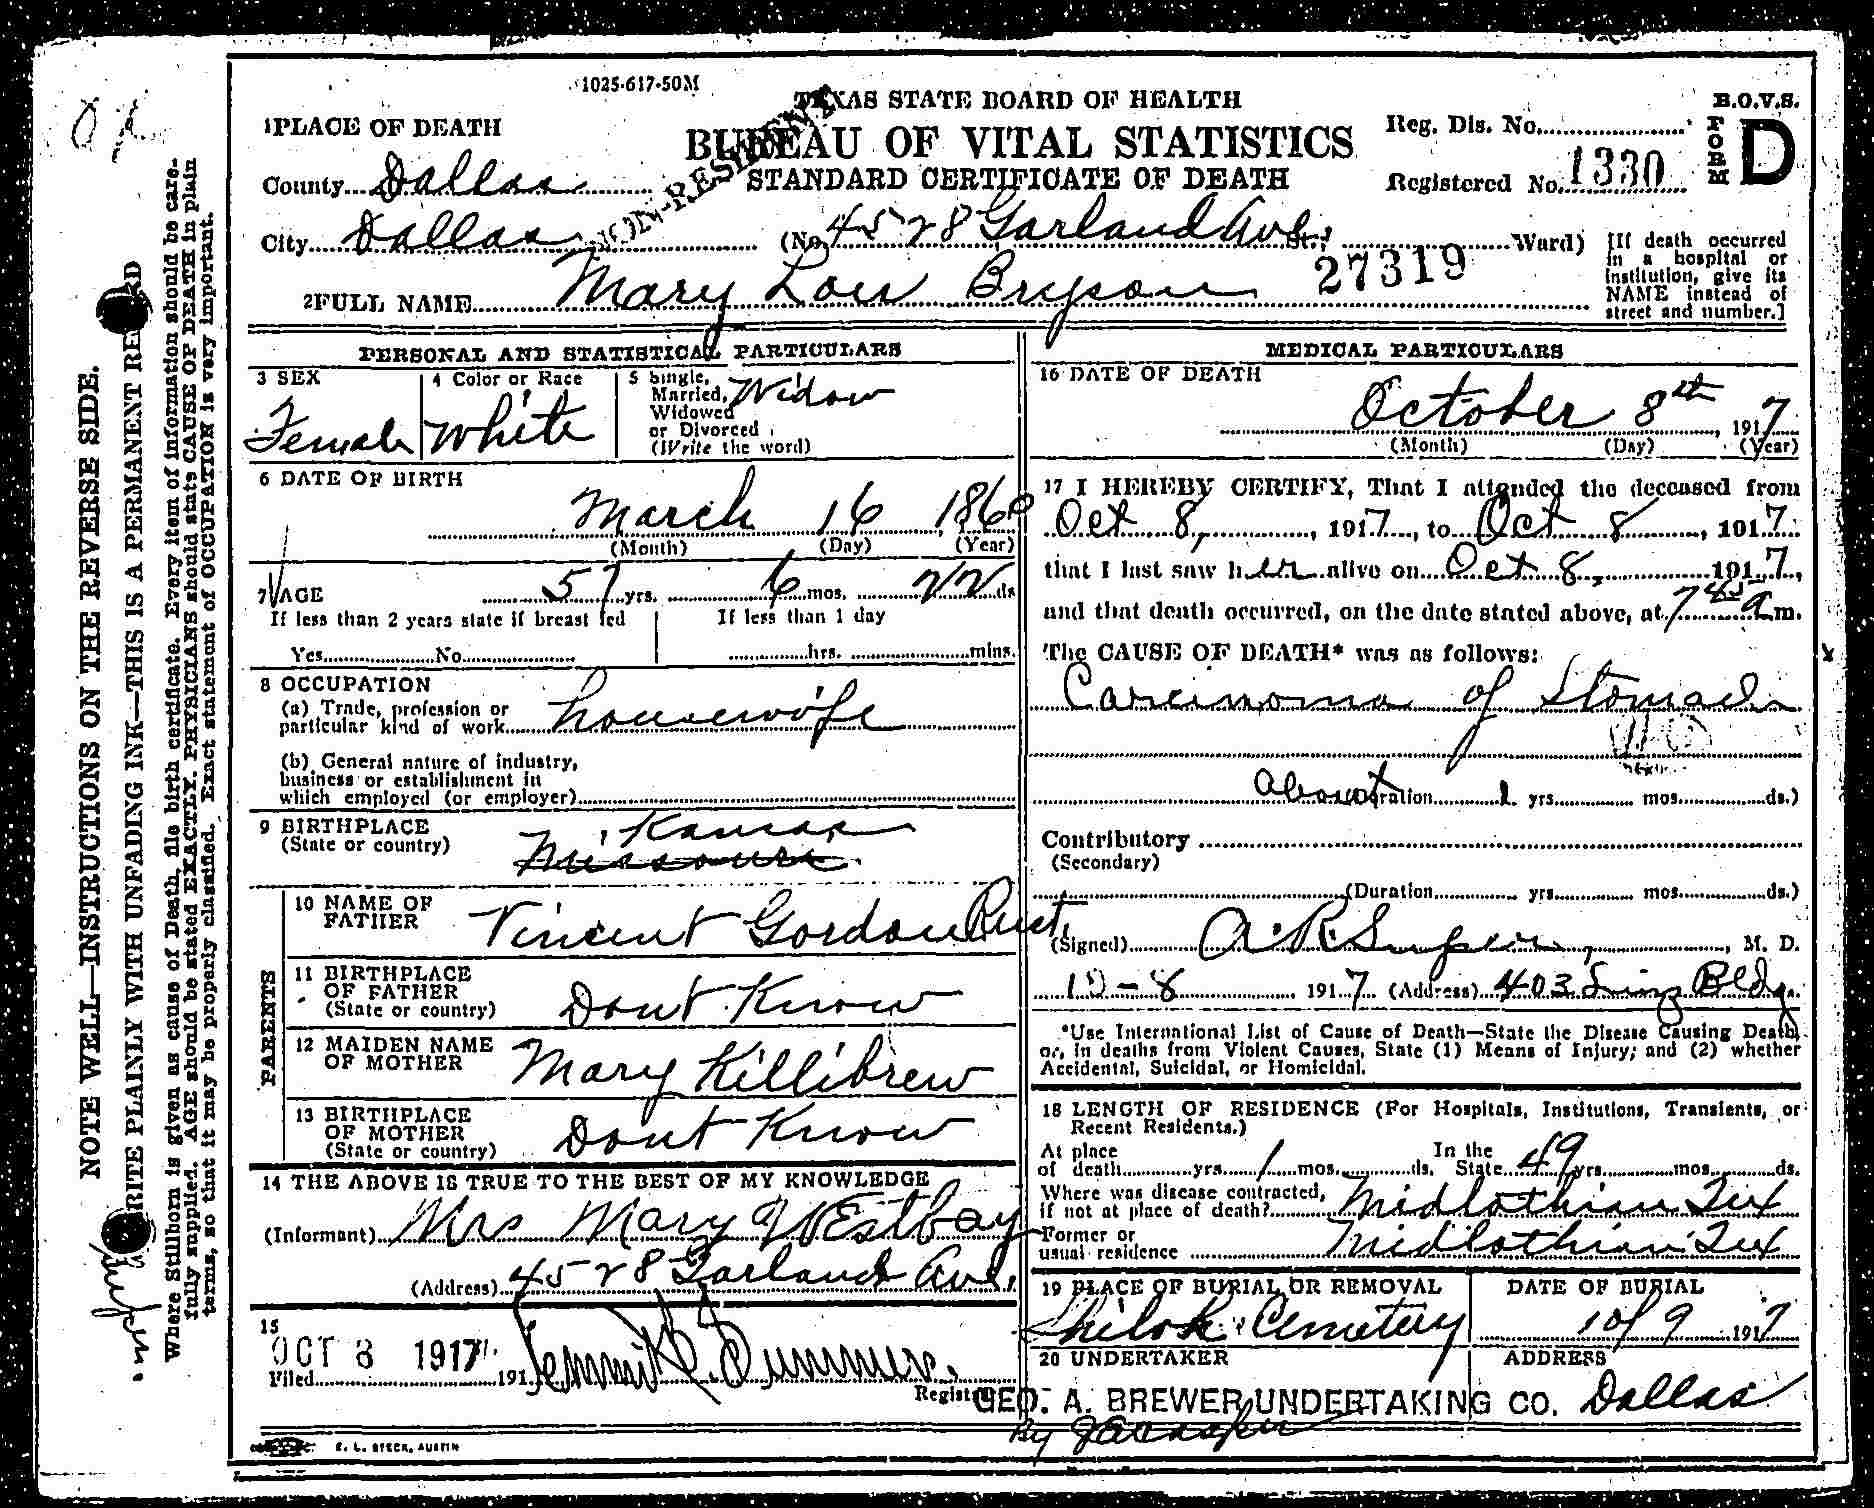 1025-617-50M
TEXAS STATE BOARD OF HEALTH
B.O.V.S.
BUREAU OF VITAL STATISTICS
STANDARD CERTIFICATE OF DEATH
NON-RESIDENT
Reg. Dis. No.
Registered No. 1330
FORM D
1 PLACE OF DEATH
County Dallas
City Dallas (No. 4528 Garland Ave. St., Ward)
[If death occurred in a hospital or institution, give its NAME instead of street and number.]
27319
2 FULL NAME Mary Lou Bryson
PERSONAL AND STATISTICAL PARTICULARS
3 SEX
Female
4 Color or Race
White
5 Single, Married, Widowed or Divorced (Write the word)
Widow
6 DATE OF BIRTH
March 16 1860
(Month) (Day) (Year)
7 AGE 57 yrs. 6 mos. 22 ds
If less than 2 years state if breast fed
Yes No
If less than 1 day
hrs. mins.
8 OCCUPATION
(a) Trade, profession or
particular kind of work housewife
(b) General nature of industry,
business or establishment in
which employed (or employer)
9 BIRTHPLACE
(State or country)
Kansas
Missouri
PARENTS
10 NAME OF FATHER
Vincent Gordon Rust,
11 BIRTHPLACE OF FATHER
(State or country)
Dont Know
12 MAIDEN NAME OF MOTHER
Mary Killibrew
13 BIRTHPLACE OF MOTHER
(State or country)
Dont Know
14 THE ABOVE IS TRUE TO THE BEST OF MY KNOWLEDGE
(Informant) Mrs Mary Westbay
(Address) 4528 Garland Ave.
15
OCT 8 1917
Filed 191
Registrar
MEDICAL PARTICULARS
16 DATE OF DEATH
October 8th, 1917
(Month) (Day) (Year)
17 I HEREBY CERTIFY, That I attended the deceased from
Oct 8, 1917, to Oct 8, 1917
that I last saw her alive on Oct 8, 1917,
and that death occurred, on the date stated above, at 7 45 a m.
The CAUSE OF DEATH* was as follows:
Carcinoma of Stomach
About
(Duration 1 yrs. mos. ds.)
Contributory
(Secondary)
(Duration yrs. mos. ds.)
(Signed) A. R. , M. D.
10-8 1917 (Address) 403 Bldg.
*Use International List of Cause of Death—State the Disease Causing Death,
or, in deaths from Violent Causes, State (1) Means of Injury; and (2) whether
Accidental, Suicidal, or Homicidal.
18 LENGTH OF RESIDENCE (For Hospitals, Institutions, Transients, or
Recent Residents.)
At place of death yrs. 1 mos. ds. In the State 49 yrs. mos. ds.
Where was disease contracted,
if not at place of death? Midlothian Tex
Former or
usual residence Midlothian Tex
19 PLACE OF BURIAL OR REMOVAL
Shiloh Cemetery
DATE OF BURIAL
10/9 1917
20 UNDERTAKER
GEO. A. BREWER UNDERTAKING CO.
By
ADDRESS
Dallas
E. L. STECK, AUSTIN
NOTE WELL—INSTRUCTIONS ON THE REVERSE SIDE.
WRITE PLAINLY WITH UNFADING INK—THIS IS A PERMANENT RECORD
Where Stillborn is given as cause of Death, file birth certificate. Every item of information should be care-
fully supplied. AGE should be stated EXACTLY. PHYSICIANS should state CAUSE OF DEATH in plain
terms, so that it may be properly classified. Exact statement of OCCUPATION is very important.